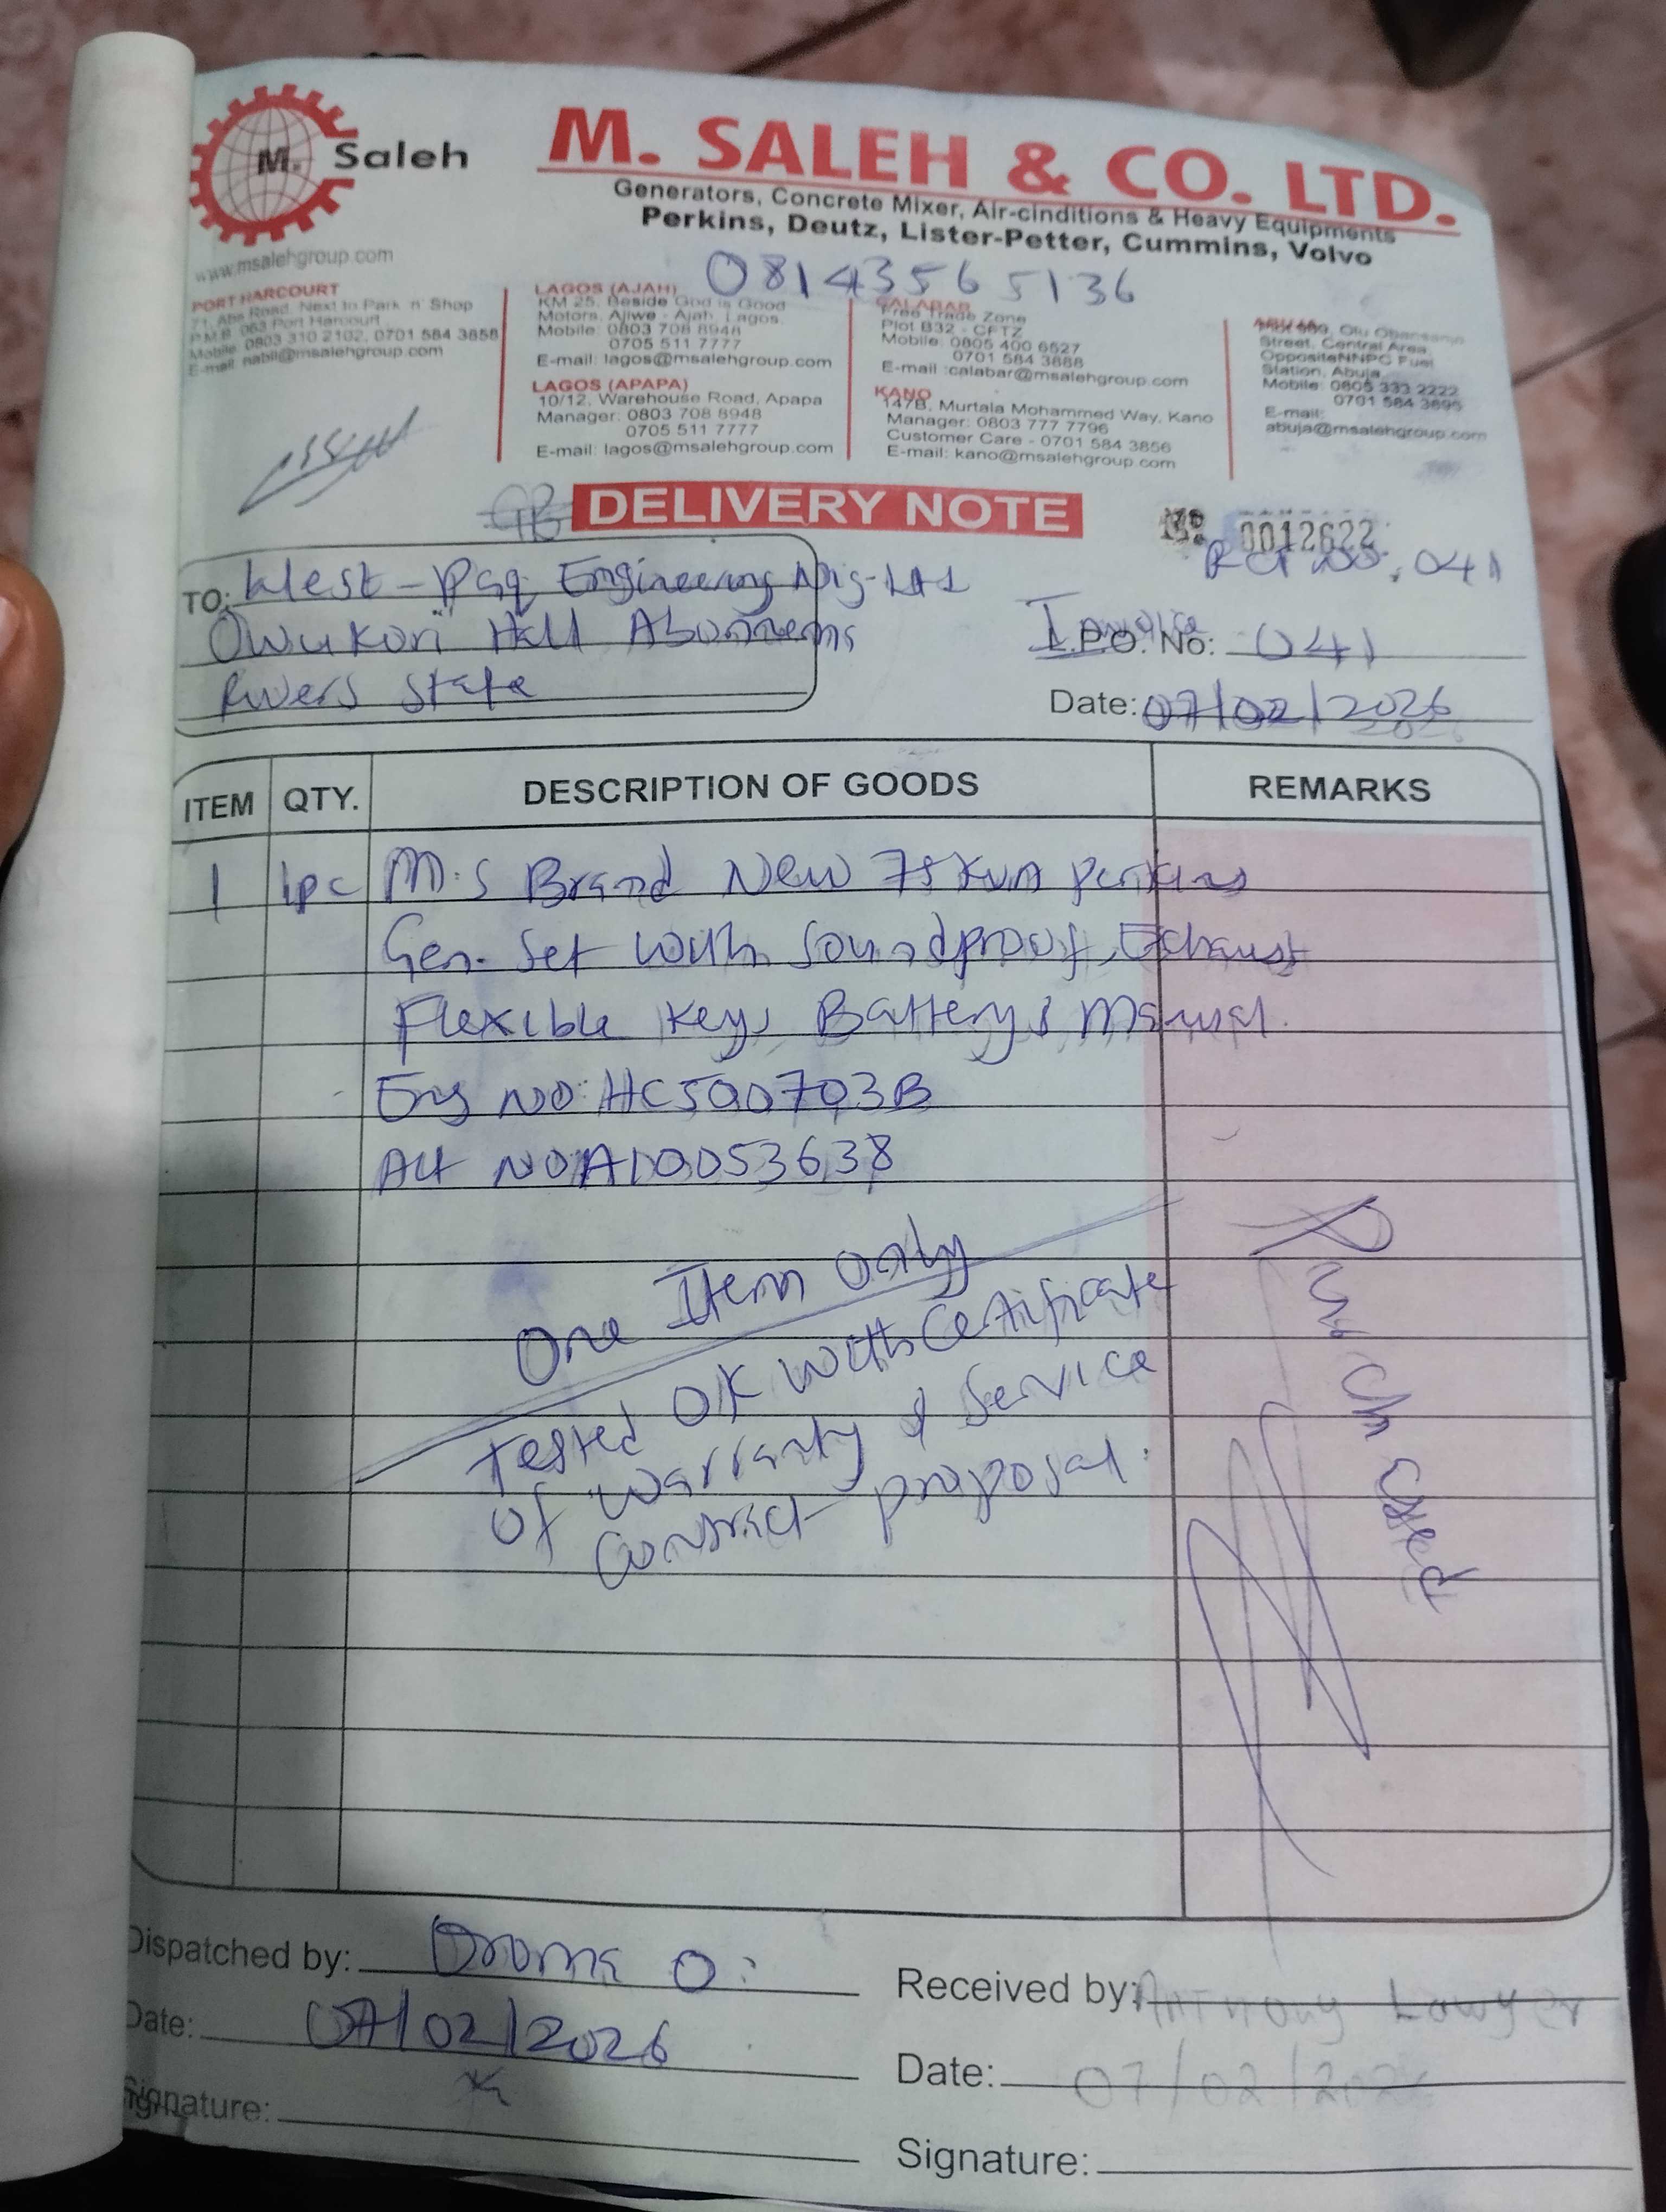 M. Saleh
M. SALEH & CO. LTD.
Generators, Concrete Mixer, Air-cinditions & Heavy Equipments
Perkins, Deutz, Lister-Petter, Cummins, Volvo
www.msalehgroup.com
08143565136
PORT HARCOURT
71, Aba Road, Next to Park n' Shop
P.M.B. 063 Port Harcourt
Mobile: 0803 310 2102, 0701 584 3858
E-mail: nabil@msalehgroup.com
LAGOS (AJAH)
KM 25, Beside God is Good
Motors, Ajiwe - Ajah, Lagos.
Mobile: 0803 708 8948
0705 511 7777
E-mail: lagos@msalehgroup.com
LAGOS (APAPA)
10/12, Warehouse Road, Apapa
Manager: 0803 708 8948
0705 511 7777
E-mail: lagos@msalehgroup.com
CALABAR
Free Trade Zone
Plot B32 - CFTZ
Mobile: 0805 400 6527
0701 584 3888
E-mail :calabar@msalehgroup.com
KANO
147B, Murtala Mohammed Way, Kano
Manager: 0803 777 7796
Customer Care - 0701 584 3856
E-mail: kano@msalehgroup.com
ABUJA
Plot 599, Olu Obansanjo
Street, Central Area
OppositeNNPC Fuel
Station, Abuja
Mobile: 0805 333 2222
0701 584 3895
E-mail:
abuja@msalehgroup.com
DELIVERY NOTE
No. 0012622
RCT NO. 041
TO: West-Paq Engineering Nig-Ltd
Owukori Hall Abonnema
Rivers State
Invoice
L.P.O. No: 041
Date: 07/02/2026
ITEM QTY. DESCRIPTION OF GOODS REMARKS
1 1pc M.S Brand New 75KVA Perkins
Gen. Set with Soundproof, Exhaust
Flexible Key, Battery & Manual.
Eng NO: HC500703B
Alt NO A100053638
One Item Only
Tested OK with Certificate
of Warranty & Service
Contract proposal.
Dispatched by: O.
Date: 07/02/2026
Signature:
Received by: Anthony Lawyer
Date: 07/02/2026
Signature: